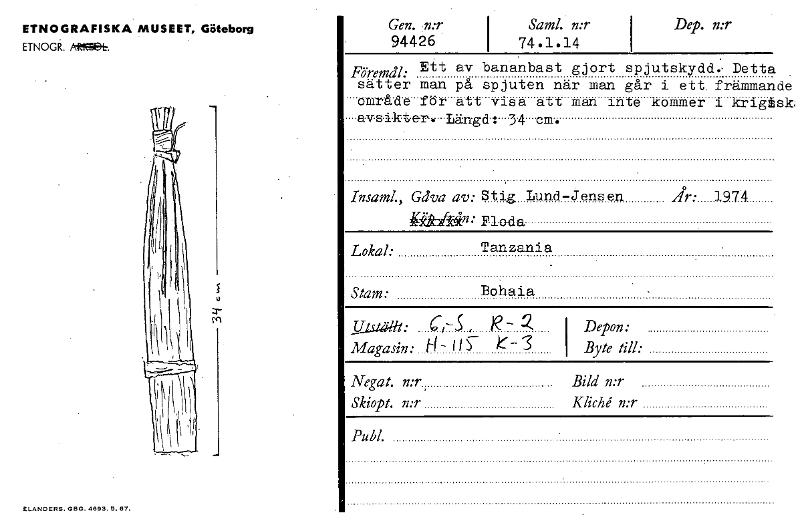 ETNOGRAFISKA MUSEET, Göteborg
ETNOGR. ARKEOL.
34 cm
ELANDERS. GBG. 4693. 5. 67.
Gen. n:r Saml. n:r Dep. n:r
94426 74.1.14
Föremål: Ett av bananbast gjort spjutskydd. Detta
sätter man på spjuten när man går i ett främmande
område för att visa att man inte kommer i krigisk
avsikter. Längd: 34 cm.
Insaml., Gåva av: Stig Lund-Jensen År: 1974
Köp från: Floda
Lokal: Tanzania
Stam: Bohaia
Utställt: 6,-5 R-2 Depon:
Magasin: H-115 K-3 Byte till:
Negat. n:r Bild n:r
Skiopt. n:r Kliché n:r
Publ.